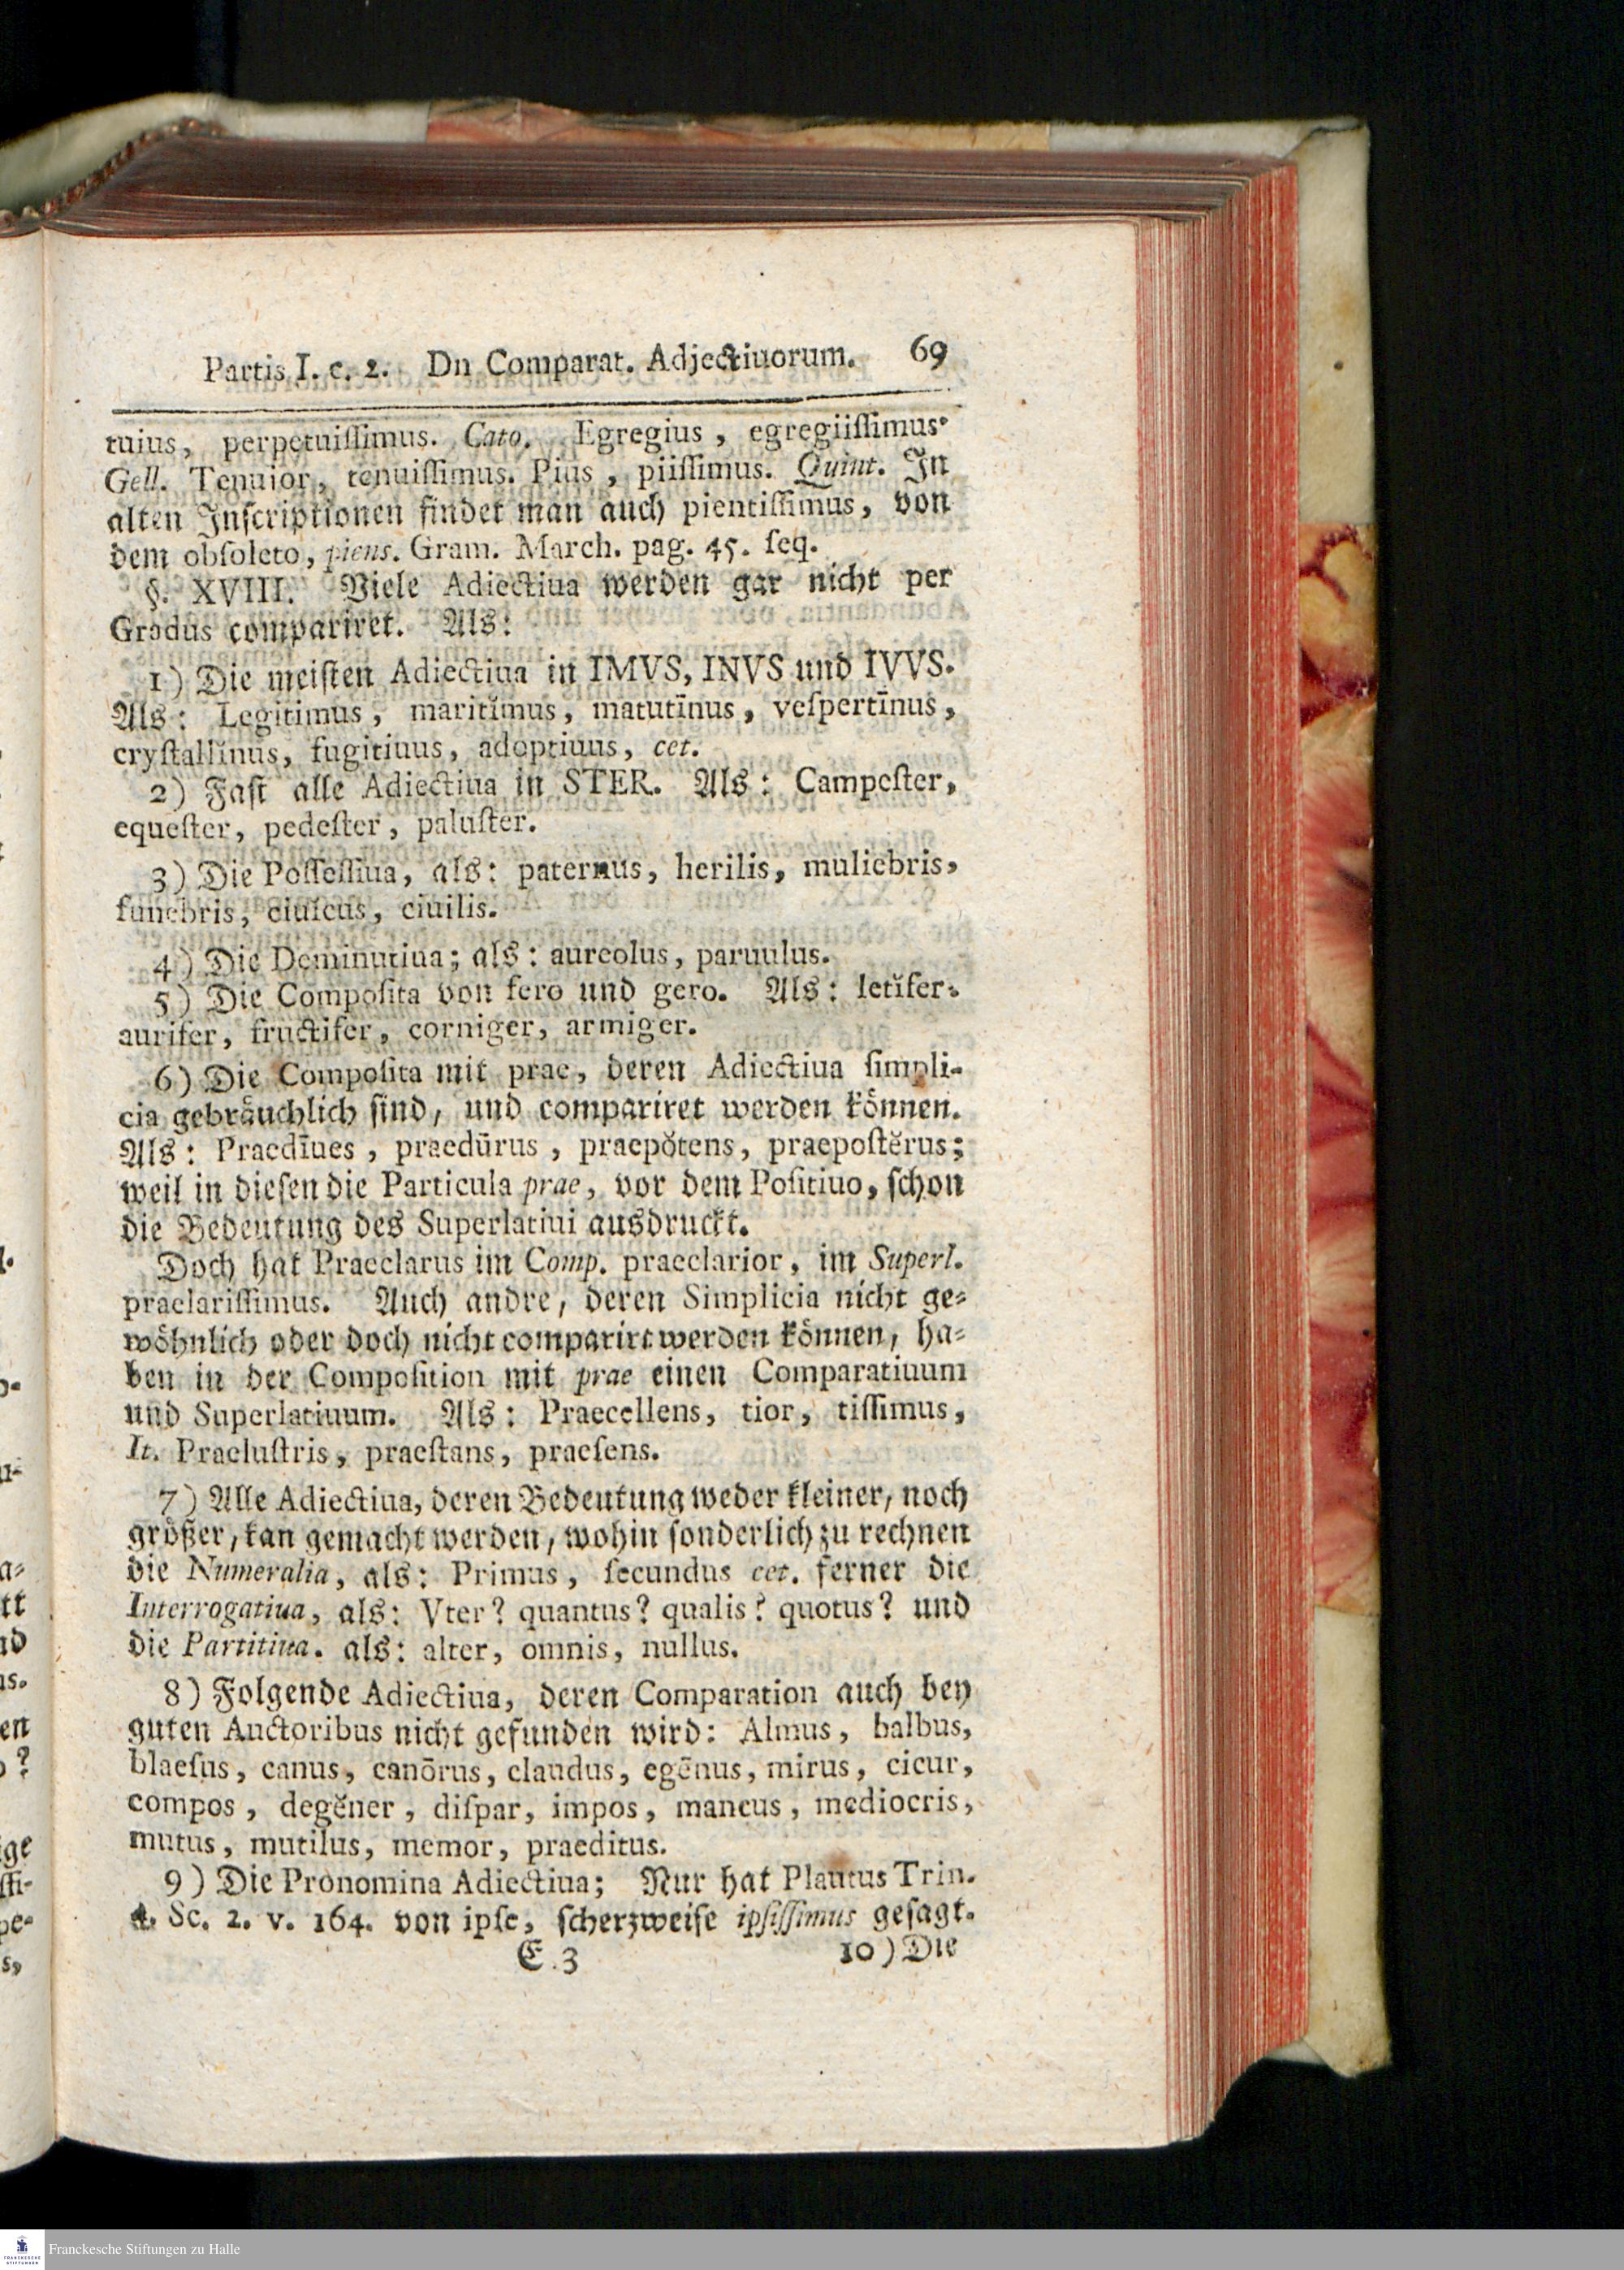 Partis I. c. 2. Dn Comparat. Adjectiuorum. 69
tuius, perpetuiſſimus. Cato. Egregius, egregiiſſimus.
Gell. Tenuior, tenuiſſimus. Pius, piiſſimus. Quint. In
alten Inſcriptionen findet man auch pientiſſimus, von
dem obſoleto, piens. Gram. March. pag. 45. ſeq.
§. XVIII. Viele Adiectiua werden gar nicht per
Gradus compariret. Als:
1) Die meiſten Adiectiua in IMVS, INVS und IVVS.
Als: Legitimus, maritĭmus, matutīnus, veſpertīnus,
cryſtallĭnus, fugitiuus, adoptiuus, cet.
2) Faſt alle Adiectiua in STER. Als: Campeſter,
equeſter, pedeſter, paluſter.
3) Die Poſſeſſiua, als: paternus, herilis, muliebris,
funebris, ciuicus, ciuilis.
4) Die Deminutiua; als: aureolus, paruulus.
5) Die Compoſita von fero und gero. Als: letĭfer.
aurifer, fructifer, corniger, armiger.
6) Die Compoſita mit prae, deren Adiectiua ſimpli-
cia gebräuchlich ſind, und compariret werden können.
Als: Praedīues, praedūrus, praepŏtens, praepoſtĕrus;
weil in dieſen die Particula prae, vor dem Poſitiuo, ſchon
die Bedeutung des Superlatiui ausdruckt.
Doch hat Praeclarus im Comp. praeclarior, im Superl.
praelariſſimus. Auch andre, deren Simplicia nicht ge-
wöhnlich oder doch nicht comparirt werden können, ha-
ben in der Compoſition mit prae einen Comparatiuum
und Superlatiuum. Als: Praecellens, tior, tiſſimus,
It. Praeluſtris, praeſtans, praeſens.
7) Alle Adiectiua, deren Bedeutung weder kleiner, noch
größer, kan gemacht werden, wohin ſonderlich zu rechnen
die Numeralia, als: Primus, ſecundus cet. ferner die
Interrogatiua, als: Vter? quantus? qualis? quotus? und
die Partitiua. als: alter, omnis, nullus.
8) Folgende Adiectiua, deren Comparation auch bey
guten Auctoribus nicht gefunden wird: Almus, balbus,
blaeſus, canus, canōrus, claudus, egēnus, mirus, cicur,
compos, degĕner, diſpar, impos, mancus, mediocris,
mutus, mutilus, memor, praeditus.
9) Die Pronomina Adiectiua; Nur hat Plautus Trin.
4. Sc. 2. v. 164. von ipſe, ſcherzweiſe ipſiſſimus geſagt.
E 3 10) Die
Franckesche Stiftungen zu Halle